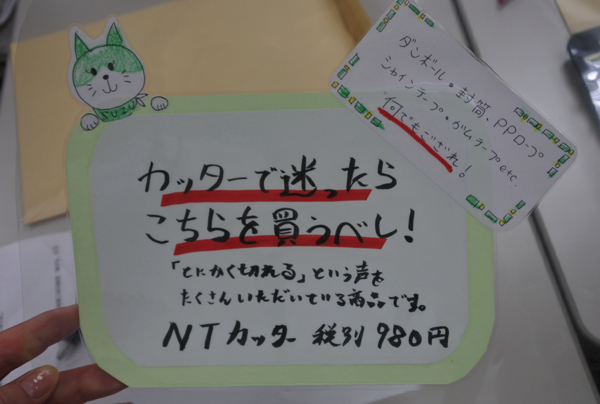 ダンボール・封筒、PPロープ
シャインテープ・ガムテープetc.
何でもござれ！
カッターで迷ったら
こちらを買うべし！
「とにかく切れる」という声を
たくさんいただいている商品です。
NTカッター 税別 980円